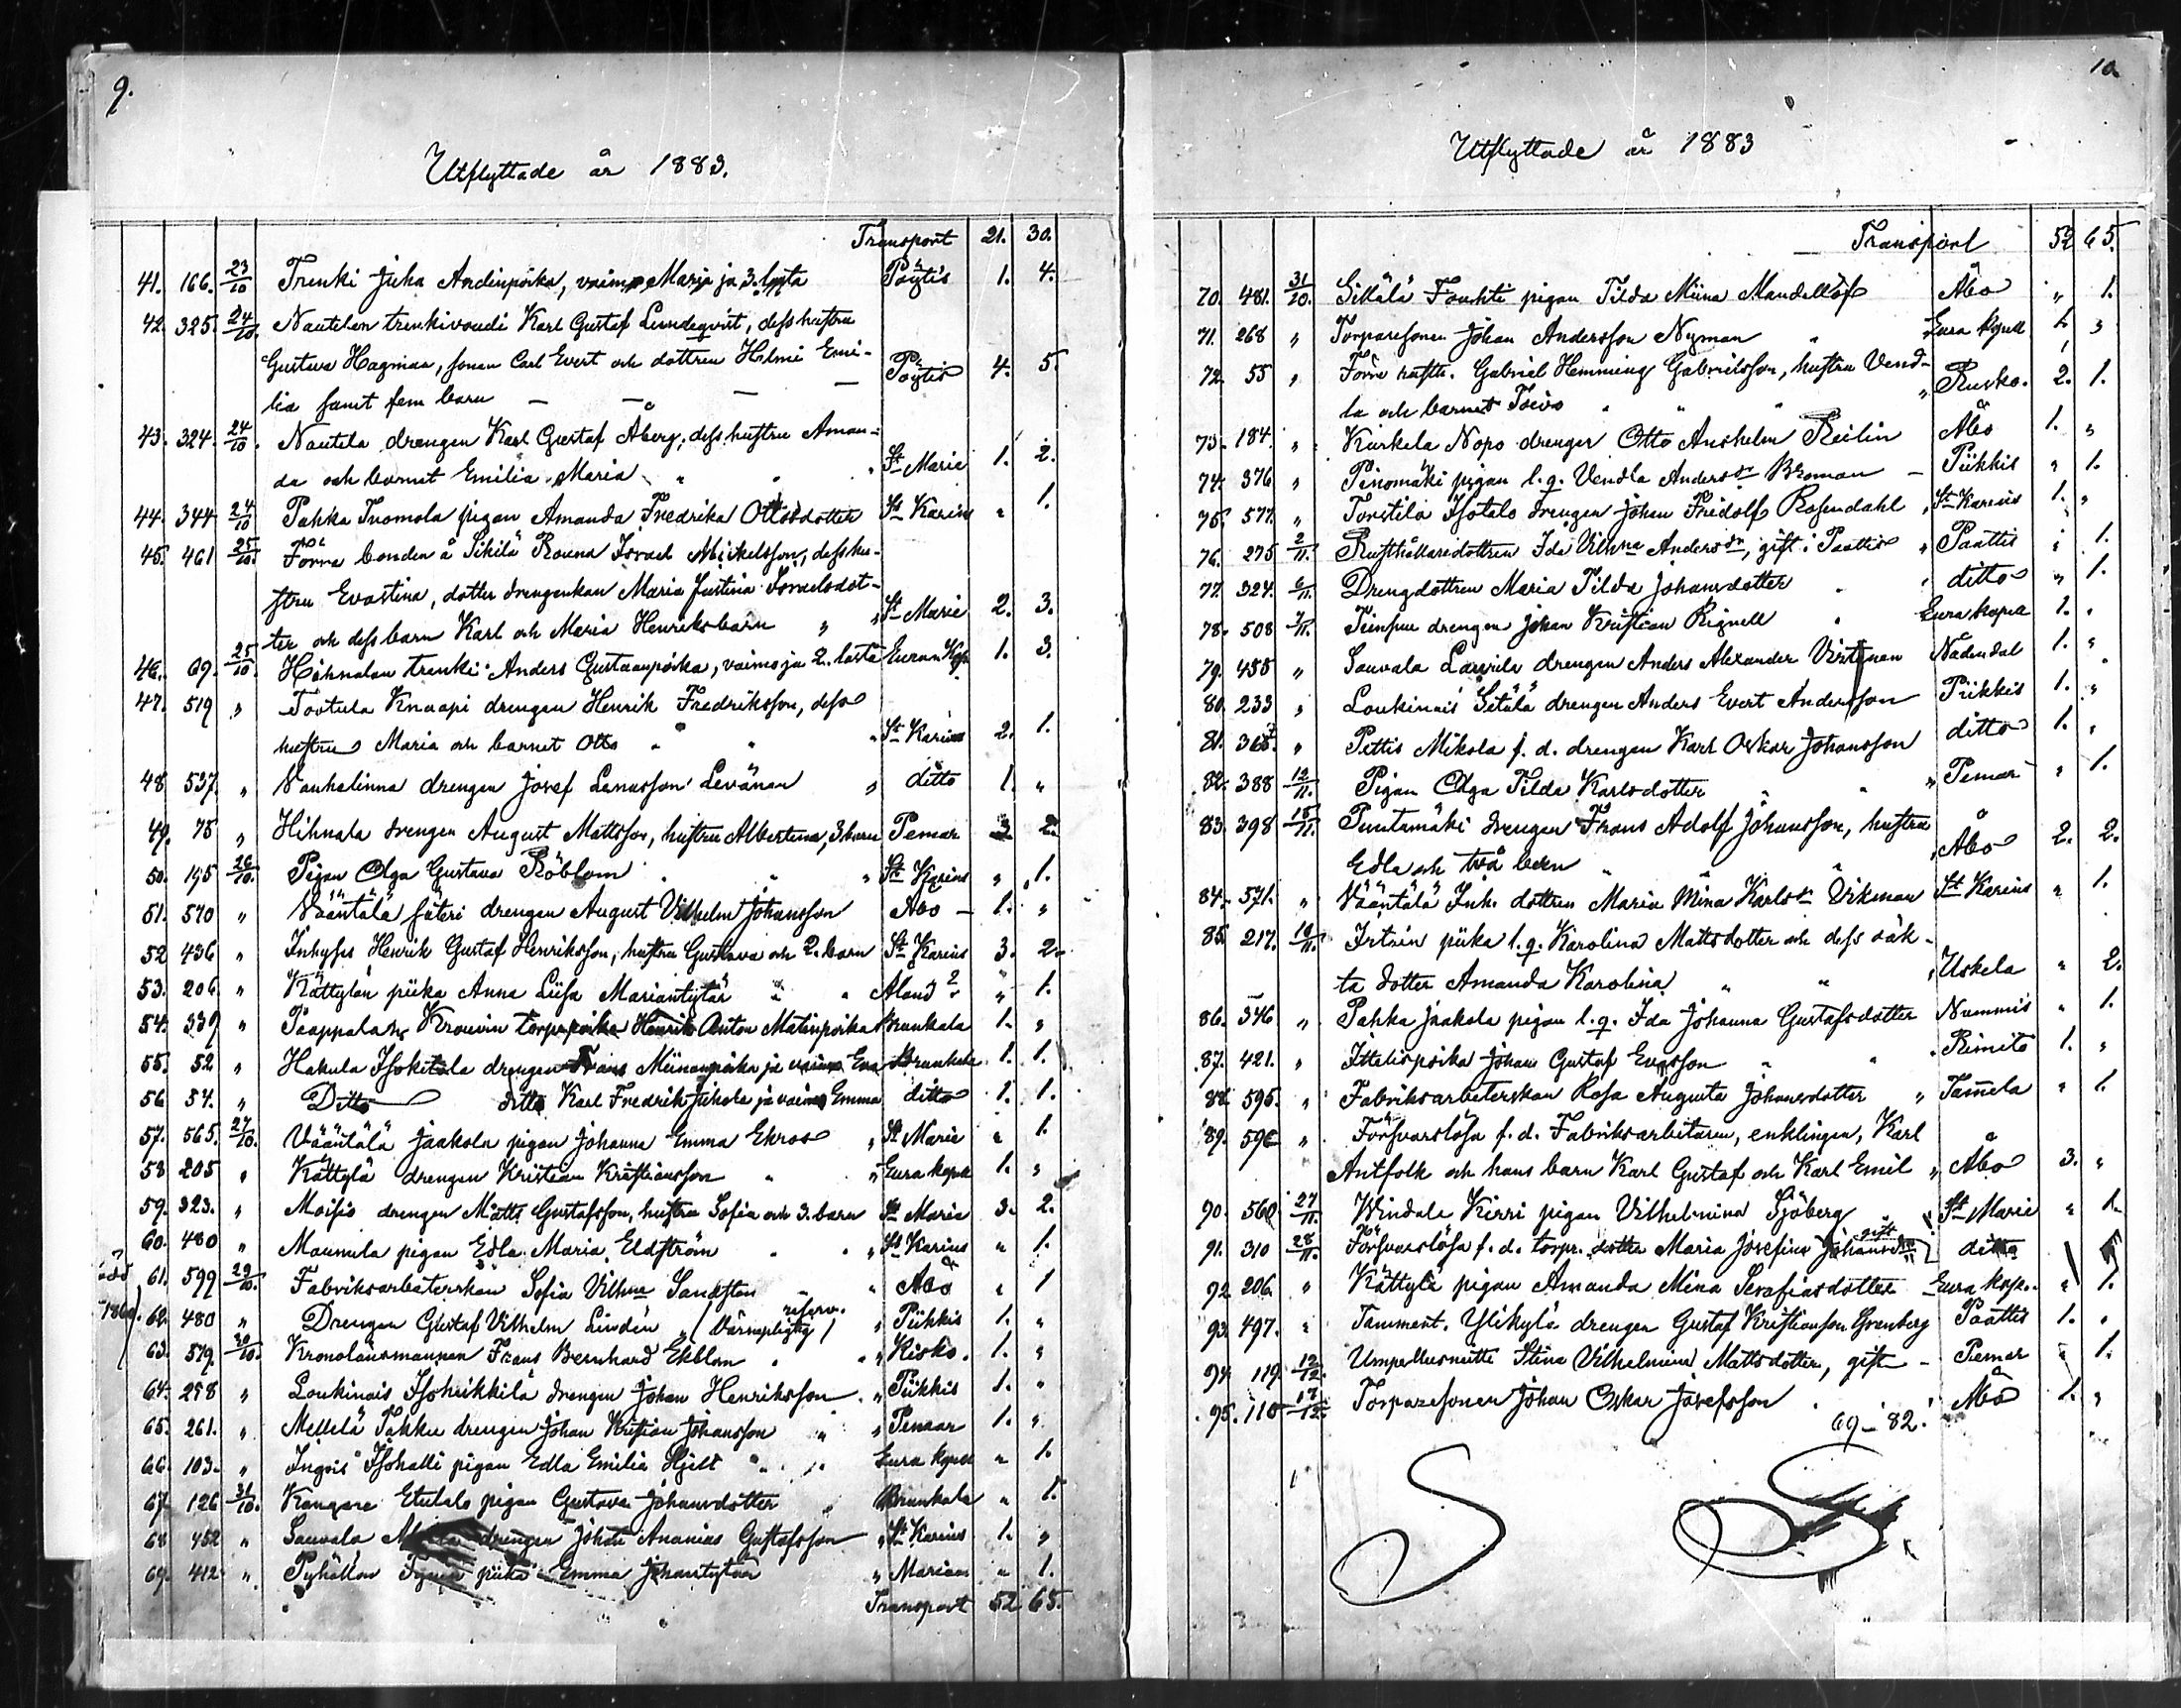 9.
Utflyttade år 1883.
Transport 21. 30.
41. 166. 23/10 Trenki Juha Andinpoika, vaimo Maria ja 3. lasta Pöytis 1. 4.
42. 325. 24/10. Nautelan trenkivoudi Karl Gustaf Lundeqvist, dess hustru
Gustava Hagman, sonen Carl Evert och dottren Helmi Emi-
lia samt fem barn — — — Pöytis 4. 5.
43. 324. 24/10. Nautela drengen Karl Gustaf Åberg, dess hustru Aman-
da och barnet Emilia Maria " " " St Marie 1. 2.
44. 344 24/10 Pahka Tuomola pigan Amanda Fredrika Ottosdotter St Karins " 1.
45. 461 25/10. Förra bonden å Sikilä Rouna Israel Mickelsson, dess hu-
stru Evastina, dotter drengenkan Maria Justina Israelsdot-
ter och dess barn Karl och Maria Henriksbarn " " St Marie 2. 3.
46. 69. 25/10. Hihnalan trenki Anders Gustaanpoika, vaimo ja 2. lasta Euran Kap. 1. 3.
47. 519 " Tortula Knaapi drengen Henrik Fredriksson, dess
hustru Maria och barnet Otto " " " St Karins 2. 1.
48 537. " Vanhalinna drengen Josef Lenusson Levänen " ditto 1. "
49. 75 " Hihnala drengen August Mattsson, hustru Albertina, 3 barn Pemar 3 2.
50. 195 26/10. Pigan Olga Gustava Röblom " " " St Karins " 1.
51. 570 " Vääntälä säteri drengen August Vilhelm Johansson Åbo — 1. "
52 436 " Inhyses Henrik Gustaf Henriksson, hustru Gustava och 2. barn St Karins 3. 2.
53. 206 " Kättylän piika Anna Liisa Mariantytär " " Åland ? " 1.
54. 339 " Paappalan Krouvin torp.poika Henrik Anton Matinpoika Brunkala 1. "
55. 52 " Hakula Isokitala drengen Frans Miinanpoika ja vaimo Eva Brunkala 1. 1.
56 54. " Ditto ditto Karl Fredrik Juhola ja vaimo Emma ditto 1. 1.
57. 565. 27/10. Vääntälä Jaakola pigan Johanna Emma Ekroos " St Marie " 1.
58 205 " Kättylä drengen Kristian Kristiansson " " Eura kapell 1. "
59. 323. " Moisio drengen Matts Gustafsson, hustru Sofia och 3. barn St Marie 3. 2.
60. 480 " Maunula pigan Edla Maria Eldström " " " St Karins " 1.
född 61. 599 29/10. Fabriksarbeterskan Sofia Vilhna Sandsten " " Åbo " 1
1860. 62. 480 " Drengen Gustaf Vilhelm Lindén " / Värnepligtig reserv. / " Piikkis 1. "
63. 579. 30/10. Kronolänsmannen Frans Bernhard Ekblom " " Kisko. 1. "
64. 258 " Loukinais Isoheikkilä drengen Johan Henriksson " " Piikkis 1. "
65. 261. " Mellilä Takku drengen Johan Kristian Johansson " " Pemar 1. "
66. 103. " Ingois Isohalli pigan Edla Emilia Hjelt " " Eura kapell " 1.
67. 126 31/10. Kangare Etutalo pigan Gustava Johansdotter " Brunkala " 1.
68 452 " Sauvala drengen Johan Ananias Gustafsson " St Karins 1. "
69. 412 " Pyhältön piika Emma Johantytär " Marian " 1.
Transport 52 65.
10.
Utflyttade år 1883
Transport 52 65.
70. 481. 31/10. Sikälä Fouhti pigan Tilda Miina Mandellöf Åbo " 1.
71. 268 " Torparesonen Johan Andersson Nyman " Eura kapell 1. "
72. 55 " Förre rusth. Gabriel Hemming Gabrielsson, hustru Vend-
la och barnet Toivo " " " " Rusko. 2. 1.
73. 184. " Kurkela Nopo drengen Otto Anshelm Reilin Åbo 1. "
74. 376 " Pinomäki pigan l. q. Vendla Andersdr Broman — Piikkis " 1.
75. 577. " Torstila Isotalo drengen Johan Fridolf Rosendahl " St Karins 1. "
76. 275 2/11. Rusthållaredottren Ida Vilhna Andersdr, gift i Paattis " Paattis " 1.
77. 324. 6/11. Drengdottren Maria Tilda Johansdotter " " ditto " 1.
78. 508 7/11. Tiinpuu drengen Johan Kristian Rignell " Eura kapell 1. "
79. 455 " Sauvala Larvila drengen Anders Alexander Virtanen Nådendal 1. "
80. 233 " Loukinais Sitälä drengen Anders Evert Andersson Piikkis 1. "
81. 365. " Pettis Mikola f. d. drengen Karl Oskar Johansson ditto 1. "
82. 388 12/11. Pigan Olga Tilda Karlsdotter " " " Pemar " 1.
83. 398 15/11. Puntamäki drengen Frans Adolf Johansson, hustru
Edla och två barn " " " Åbo 2. 2.
84. 571. " Vääntälä Inh. dottren Maria Mina Karlsdr Vikman St Karins " 1.
85. 217. 19/11. Irtain piika l. q. Karolina Mattsdotter och dess oäk-
ta dotter Amanda Karolina " " " Uskela " 2.
86. 346 " Pahka Jaakola pigan l. q. Ida Johanna Gustafsdotter Nummis " 1.
87. 421. " Ittelispoika Johan Gustaf Evasson " " " Rimito 1. "
88. 595. " Fabriksarbeterskan Rosa Augusta Johansdotter " Tamela " 1.
89. 596 " Försvarslösa f. d. Fabriksarbetaren, enklingen, Karl
Antfolk och hans barn Karl Gustaf och Karl Emil " Åbo 3. "
90. 560. 27/11. Windala Kirri pigan Vilhelmina Sjöberg " St Marie " 1.
91. 310 28/11. Försvarslösa f. d. torp. dotter Maria Josefina Johansdr gift ditto
92 206. " Kättylä pigan Amanda Mina Serafiasdotter Eura kap. " 1.
93. 497. " Tamment. Ylikylä drengen Gustaf Kristiansson Grenberg Paattis 1. "
94. 119. 12/12. Umpellusneitti Stina Vilhelmina Mattsdotter, gift — Pemar " 1.
95. 110 17/12. Torparesonen Johan Oskar Josefsson " Åbo 1. "
69 — 82.